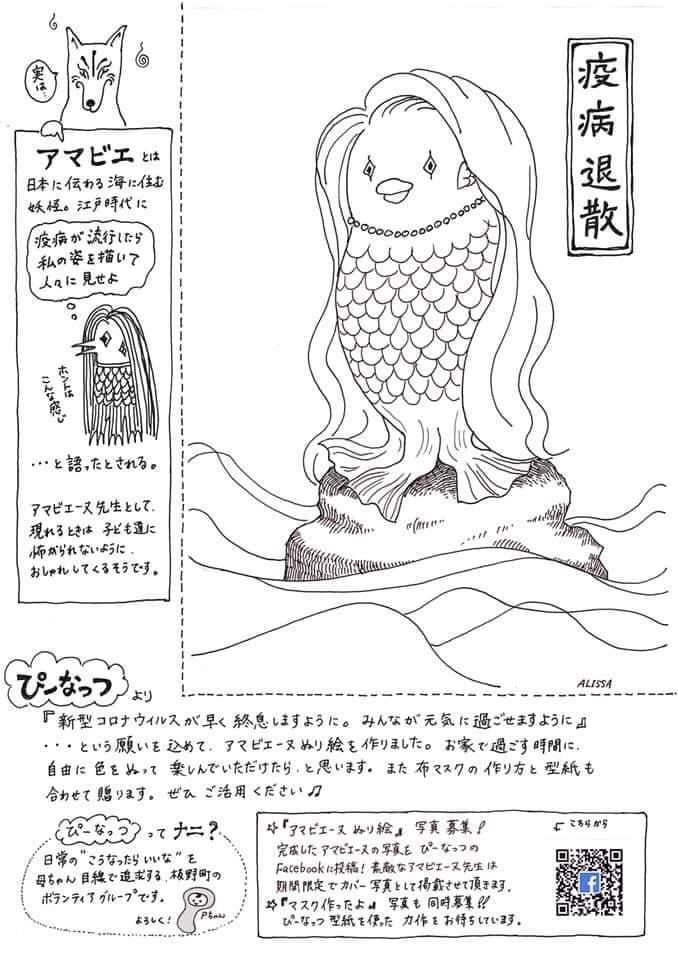 実は…
アマビエとは
日本に伝わる海に住む
妖怪。江戸時代に
疫病が流行したら
私の姿を描いて
人々に見せよ
ホントは
こんな感じ
…と語ったとされる。
アマビエーヌ先生として、
現れるときは子ども達に
怖がられないように、
おしゃれしてくるそうです。
疫病退散
ALISSA
ぴーなっつより
『新型コロナウイルスが早く終息しますように。みんなが元気に過ごせますように』
・・・という願いを込めて、アマビエーヌぬり絵を作りました。お家で過ごす時間に、
自由に色をぬって楽しんでいただけたら、と思います。また布マスクの作り方と型紙も
合わせて贈ります。ぜひご活用ください♫
ぴーなっつってナニ?
日常の"こうなったらいいな"を
母ちゃん目線で追求する、板野町の
ボランティアグループです。
よろしく!
Pちゃん
☆『アマビエーヌぬり絵』写真募集!!
完成したアマビエーヌの写真をぴーなっつの
Facebookに投稿!素敵なアマビエーヌ先生は
期間限定でカバー写真として掲載させて頂きます。
☆『マスク作ったよ』写真も同時募集!!
ぴーなっつ型紙を使った力作をお待ちしています。
こちらから